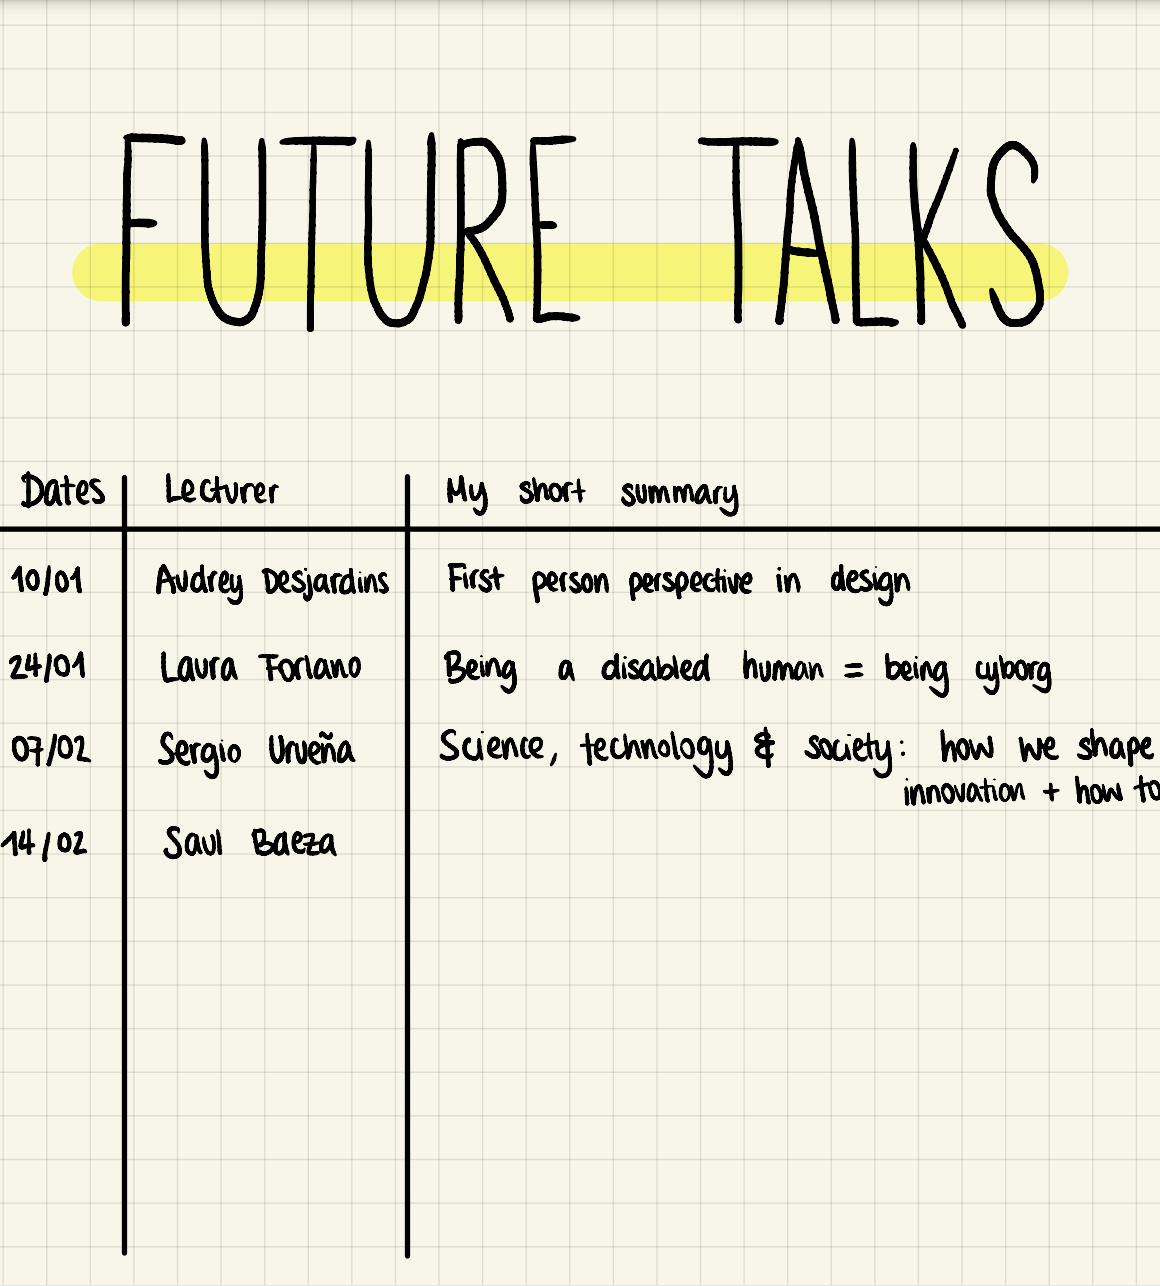 FUTURE TALKS
Dates Lecturer My short summary
10/01 Audrey Desjardins First person perspective in design
24/01 Laura Forlano Being a disabled human = being cyborg
07/02 Sergio Urueña Science, technology & society: how we shape
innovation + how to
14/02 Saul Baeza